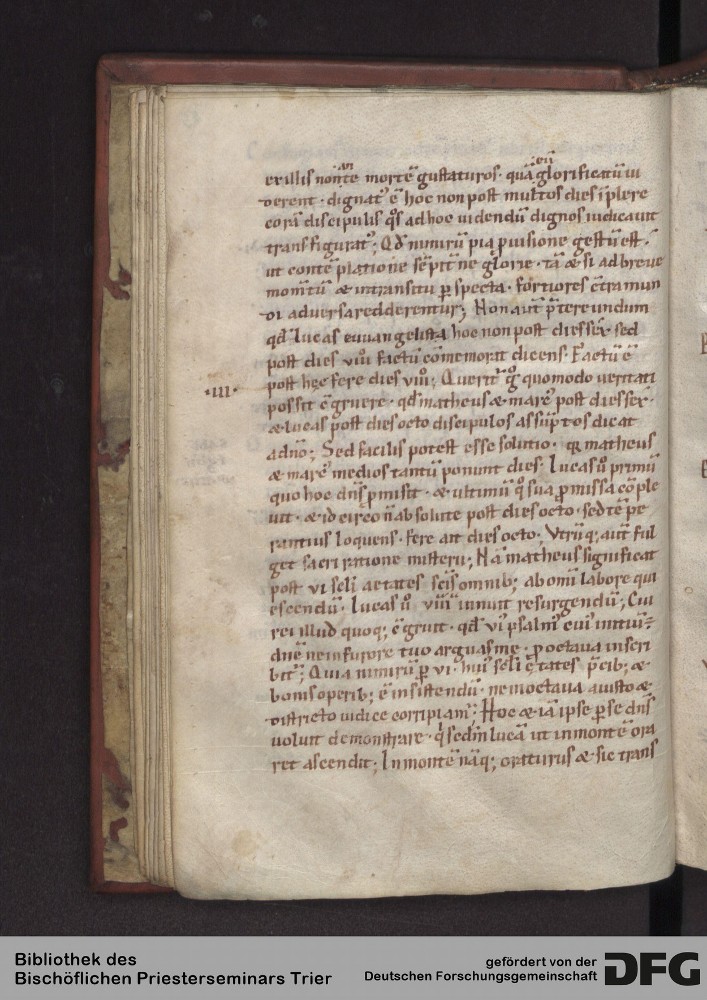 ex illis non eē morte gustaturos · quā glorificatū ui
derent · dignat᷒ ē hoc non post multos dies īplere
corā discipulis q̊s ad hoc uidendū dignos iudicauit
transfigurat᷒; Qd̄ nimirū pia puisione gestū est ·
ut contēplatione sēpitne glorie · tā & si ad breue
momtū & intransitu p̱specta · fortiores ct̄ra mun
di aduersa redderentur; Non aut̄ p̄tereundum
qd̄ lucas euuangelista hoc non post dies sex · sed
post dies viii factū cōmemorat dicens · Factū ē
post hęc fere dies viii; Querit᷒ g̊ quomodo ueritati
·III·
possit ꝯgruere · qd̄ matheus & marc᷒ post dies sex ·
& lucas post dies octo discipulos assūptos dicat
a dn̄o; Sed facilis potest esse solutio · q̱ matheus
& marc᷒ medios tantū ponunt dies · Lucas ů primū
quo hoc dn̄s p̱misit · & ultimū q̊ sua p̱missa cōple
uit · & idcirco n̄ absolute post dies octo · sed tē pe
rantius loquens · fere ait dies octo; Vtrūq; aut̄ ful
get sacri ratione misterii; Nā matheus significat
post vi scl̄i aetates scīs omnib; ab omī labore qui
escendū · Lucas ů viiī innuit resurgendū; Cui
rei illud quoq; ꝯgruit · qd̄ vi᷒ psalm᷒ cui᷒ initiū ÷
dnē ne in furore tuo arguas me · p̱ octaua inscri
bit᷒; Quia nimirū p̱ vi · hui᷒ scl̄i ętates p̄cib; &
bonis operib; ē insistendū · ne in octaua a iusto &
districto iudice corripiam᷒; Hoc & iā ipse p̱ se dn̄s
uoluit demonstrare · q sed̄m lucā ut in montē ora
ret ascendit; In montē nāq; oraturus & sic trans
Bibliothek des
Bischöflichen Priesterseminars Trier
gefördert von der
Deutschen Forschungsgemeinschaft
DFG